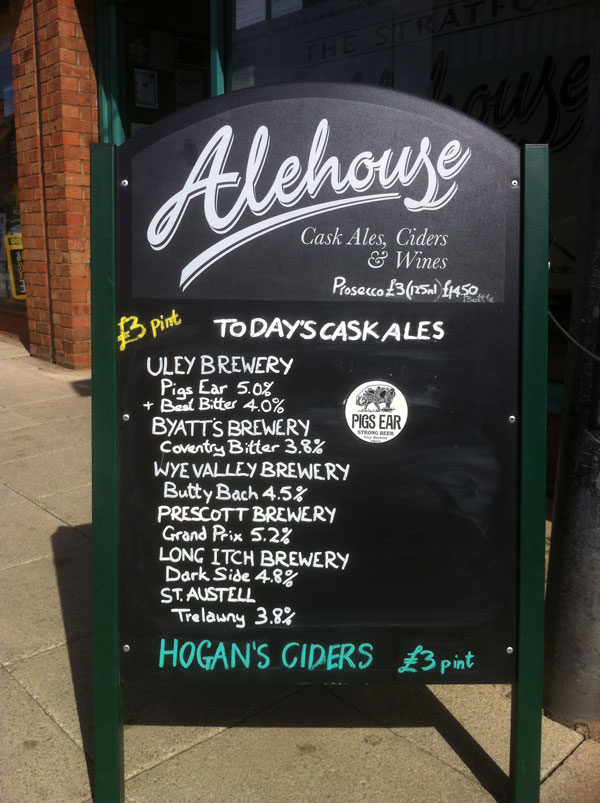 THE STRATFO
Alehouse
Cask Ales, Ciders
& Wines
Prosecco £3 (125ml) £14.50 Bottle
£3 pint
TODAY'S CASK ALES
ULEY BREWERY
Pigs Ear 5.0%
+ Best Bitter 4.0%
BYATT'S BREWERY
Coventry Bitter 3.8%
WYE VALLEY BREWERY
Butty Bach 4.5%
PRESCOTT BREWERY
Grand Prix 5.2%
LONG ITCH BREWERY
Dark Side 4.8%
ST. AUSTELL
Trelawny 3.8%
PIGS EAR
STRONG BEER
Uley Brewery
HOGAN'S CIDERS £3 pint